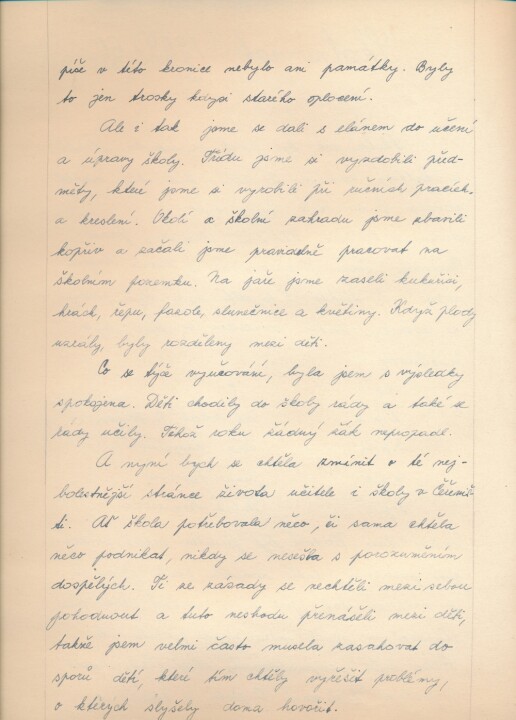 píše v této kronice nebylo ani památky. Byly
to jen trosky kdysi starého oplocení.
Ale i tak jsme se dali s elánem do učení
a úpravy školy. Třídu jsme si vyzdobili před-
měty, které jsme si vyrobili při ručních pracích
a kreslení. Okolí a školní zahradu jsme zbavili
kopřiv a začali jsme pravidelně pracovat na
školním pozemku. Na jaře jsme zaseli kukuřici,
hrách, řepu, fazole, slunečnice a květiny. Když plody
uzrály, byly rozděleny mezi děti.
Co se týče vyučování, byla jsem s výsledky
spokojena. Děti chodily do školy rády a také se
rády učily. Tohož roku žádný žák nepropadl.
A nyní bych se chtěla zmínit o té nej-
bolestnější stránce života učitele i školy v
ti. Ať škola potřebovala něco, či sama chtěla
něco podnikat, nikdy se nesešla s porozuměním
dospělých. Ti ze zásady se nechtěli mezi sebou
pohodnout a tuto neshodu přenášeli mezi děti,
takže jsem velmi často musela zasahovat do
sporů dětí, které tím chtěly vyřešit problémy,
o kterých slyšely doma hovořit.